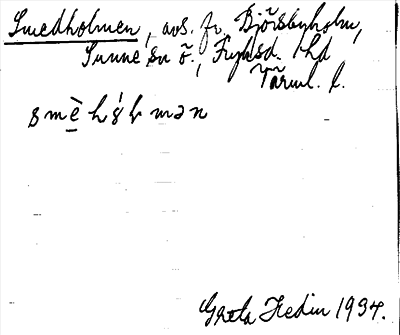 Smedholmen, avs. fr. Björsbyholm,
Sunne sn ö., Fryksd. hd
Värml. l.
smèhól mən
Greta Hedin 1934.